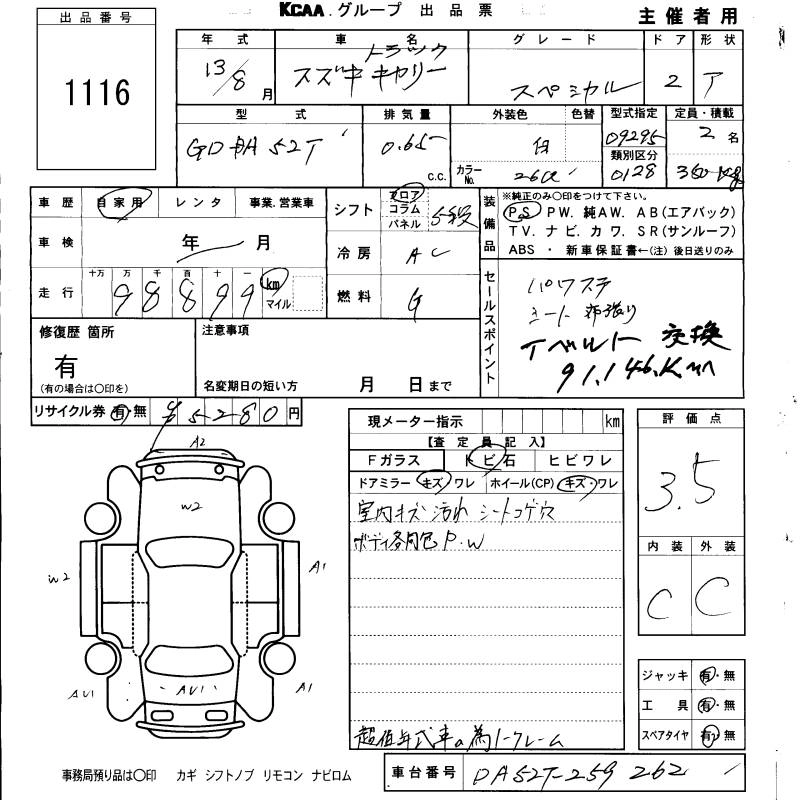 KCAA.グループ 出品票 主催者用
出品番号
1116
年式 車名 グレード ドア 形状
13/8月 トラック スズキ キャリー スペシャル 2 T
型式 排気量 外装色 色替 型式指定 定員・積載
GD-DA52T 0.65 c.c. 白 09295 2名
カラーNo. 26U 類別区分 0128 350kg
車歴 自家用 レンタ 事業.営業車
シフト フロア コラム パネル 5段
装備品 ※純正のみ○印をつけて下さい。
P.S P.W. 純A.W. A.B(エアバック)
T.V. ナビ. カワ. S.R(サンルーフ)
ABS ・ 新車保証書←(注)後日送りのみ
車検 年 月
冷房 AC
走行 十万 万 千 百 十 一
98899 km マイル
燃料 G
セールスポイント
パワステ
シート 布張り
Tベルト 交換
91,146.Km
修復歴 箇所 注意事項
有
(有の場合は○印を)
名変期日の短い方 月 日まで
リサイクル券 有・無 ¥5280円
現メーター指示 km
【査定員記入】
Fガラス トビ石 ヒビワレ
ドアミラー キズ ワレ ホイール(CP) キズ・ワレ
室内キズ 汚れ シートコゲ穴
ボディ各凹色 P.W
超低年式車の為ノークレーム
評価点
3.5
内装 外装
C C
ジャッキ 有・無
工具 有・無
スペアタイヤ 有・無
A2
W2
W2
A1
AU1
AU1
A1
事務局預り品は○印 カギ シフトノブ リモコン ナビロム
車台番号 DA52T-259262